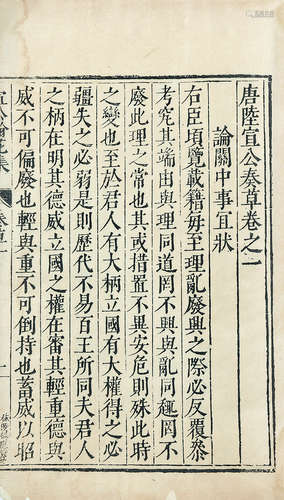 唐陸宣公奏草卷之一
論關中事宜狀
右臣頃覽載籍每至理亂廢興之際必反覆叅
考究其端由與理同道罔不興與亂同趣罔不
廢此理之常也其或措置不異安危則殊此時
之變也至於君人有大柄立國有大權得之必
彊失之必弱是則歷代不易百王所同夫君人
之柄在明其德威立國之權在審其輕重德與
威不可偏廢也輕與重不可倒持也蓄威以昭